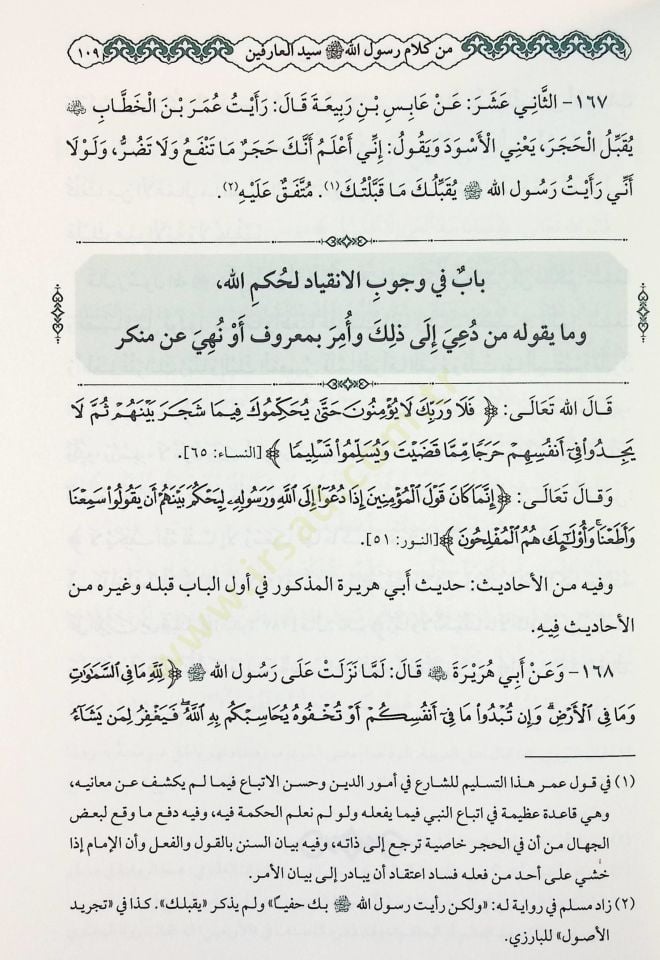 من كلام رسول الله ﷺ سيد العارفين ١٠٩
١٦٧- الثَّانِي عَشَرَ: عَنْ عَابِسِ بْنِ رَبِيعَةَ قَالَ: رَأَيْتُ عُمَرَ بْنَ الْخَطَّابِ ﵁
يُقَبِّلُ الْحَجَرَ، يَعْنِي الْأَسْوَدَ وَيَقُولُ: إِنِّي أَعْلَمُ أَنَّكَ حَجَرٌ مَا تَنْفَعُ وَلَا تَضُرُّ، وَلَوْلَا
أَنِّي رَأَيْتُ رَسُولَ الله ﷺ يُقَبِّلُكَ مَا قَبَّلْتُكَ(١). مُتَّفَقٌ عَلَيْهِ(٢).
بابٌ في وجوبِ الانقياد لحُكمِ الله،
وما يقوله من دُعِيَ إِلَى ذلِكَ وأُمِرَ بمعروف أَوْ نُهِيَ عن منكر
قَالَ الله تَعَالَى: ﴿ فَلَا وَرَبِّكَ لَا يُؤْمِنُونَ حَتَّىٰ يُحَكِّمُوكَ فِيمَا شَجَرَ بَيْنَهُمْ ثُمَّ لَا
يَجِدُوا۟ فِىٓ أَنفُسِهِمْ حَرَجًا مِّمَّا قَضَيْتَ وَيُسَلِّمُوا۟ تَسْلِيمًا ﴾ [النساء: ٦٥].
وَقَالَ تَعَالَى: ﴿إِنَّمَا كَانَ قَوْلَ ٱلْمُؤْمِنِينَ إِذَا دُعُوٓا۟ إِلَى ٱللَّهِ وَرَسُولِهِۦ لِيَحْكُمَ بَيْنَهُمْ أَن يَقُولُوا۟ سَمِعْنَا
وَأَطَعْنَا ۚ وَأُو۟لَـٰٓئِكَ هُمُ ٱلْمُفْلِحُونَ ﴾[النور: ٥١].
وفيه من الأحاديث: حديث أَبي هريرة المذكور في أول الباب قبله وغيره من
الأحاديث فِيهِ.
١٦٨- وَعَنْ أَبِي هُرَيْرَةَ ﵁ قَالَ: لَمَّا نَزَلَتْ عَلَى رَسُولِ الله ﷺ ﴿ لِّلَّهِ مَا فِى ٱلسَّمَـٰوَٰتِ
وَمَا فِى ٱلْأَرْضِ ۗ وَإِن تُبْدُوا۟ مَا فِىٓ أَنفُسِكُمْ أَوْ تُخْفُوهُ يُحَاسِبْكُم بِهِ ٱللَّهُ ۖ فَيَغْفِرُ لِمَن يَشَآءُ
(١) في قول عمر هذا التسليم للشارع في أمور الدين وحسن الاتباع فيما لم يكشف عن معانيه،
وهي قاعدة عظيمة في اتباع النبي فيما يفعله ولو لم نعلم الحكمة فيه، وفيه دفع ما وقع لبعض
الجهال من أن في الحجر خاصية ترجع إلى ذاته، وفيه بيان السنن بالقول والفعل وأن الإمام إذا
خشي على أحد من فعله فساد اعتقاد أن يبادر إلى بيان الأمر.
(٢) زاد مسلم في رواية له: «ولكن رأيت رسول الله ﷺ بك حفيًا» ولم يذكر «يقبلك». كذا في «تجريد
الأصول» للبارزي.
www.irsad.com.tr